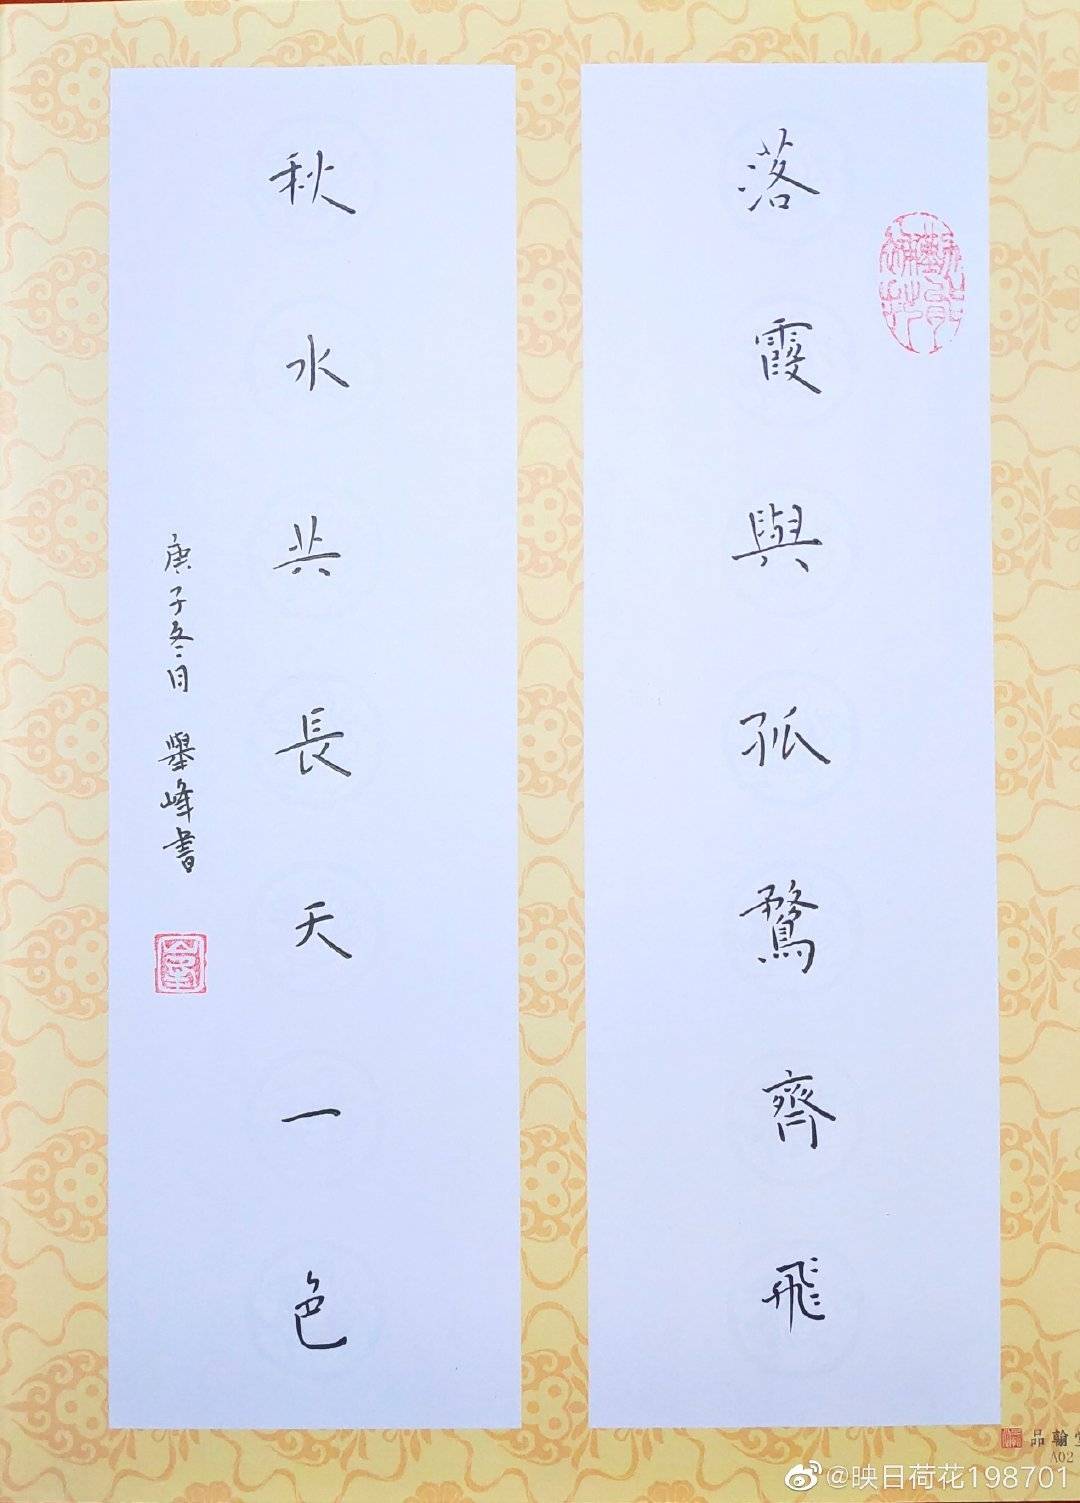 落霞與孤鶩齊飛
秋水共長天一色
庚子冬日 舉峰書
品翰堂
A02
@映日荷花198701